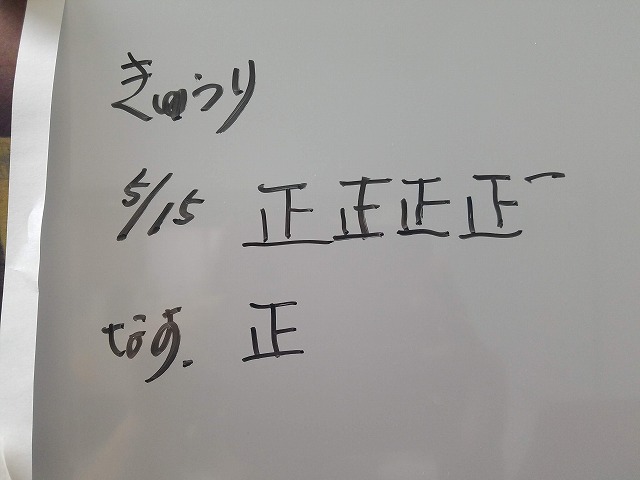 きゅうり
5/15 正正正正一
なす. 正